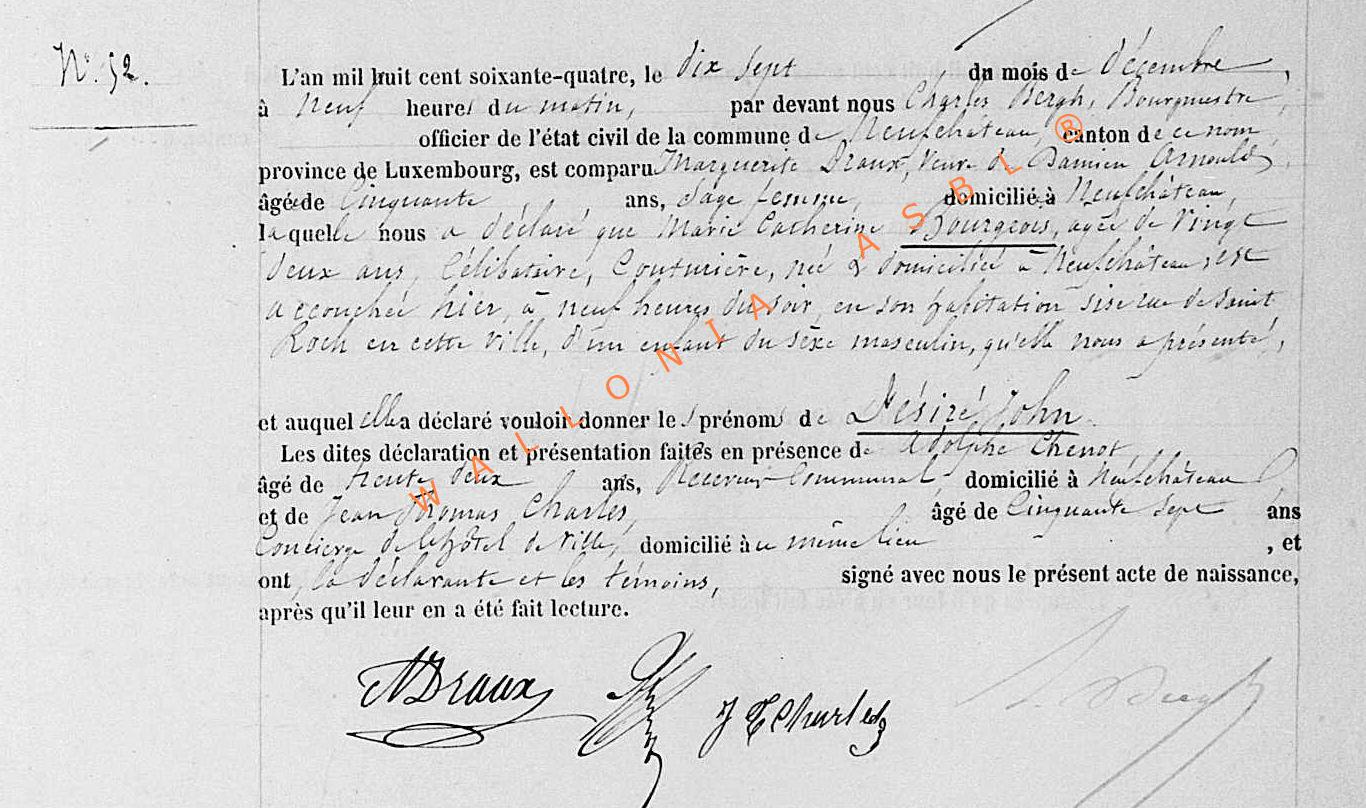 N° 52.
L'an mil huit cent soixante-quatre, le dix sept du mois de Décembre,
à Neuf heures du matin, par devant nous Charles Bergh, Bourgmestre,
officier de l'état civil de la commune de Neufchâteau, canton de ce nom,
province de Luxembourg, est comparu Marguerite Draux, Veuve de Damien Arnould,
âgée de Cinquante ans, Sage femme, domicilié à Neufchâteau,
laquelle nous a déclaré que Marie Catherine Bourgeois, agée de Vingt
deux ans, Célibataire, Couturière, née & domiciliée à Neufchâteau, est
accouchée hier, à neuf heures du soir, en son habitation sise rue de Saint
Roch en cette Ville, d'un enfant du sèxe masculin, qu'elle nous a présenté,
et auquel elle a déclaré vouloir donner les prénoms de Désiré John.
Les dites déclaration et présentation faites en présence de Adolphe Chenot,
âgé de trente deux ans, Receveur Communal, domicilié à Neufchâteau,
et de Jean Thomas Charles, âgé de Cinquante sept ans
Concierge de l'hôtel de Ville, domicilié à ce même lieu, et
ont, la déclarante et les témoins, signé avec nous le présent acte de naissance,
après qu'il leur en a été fait lecture.
MDraux
J T Charles
WALLONIA ASBL ®